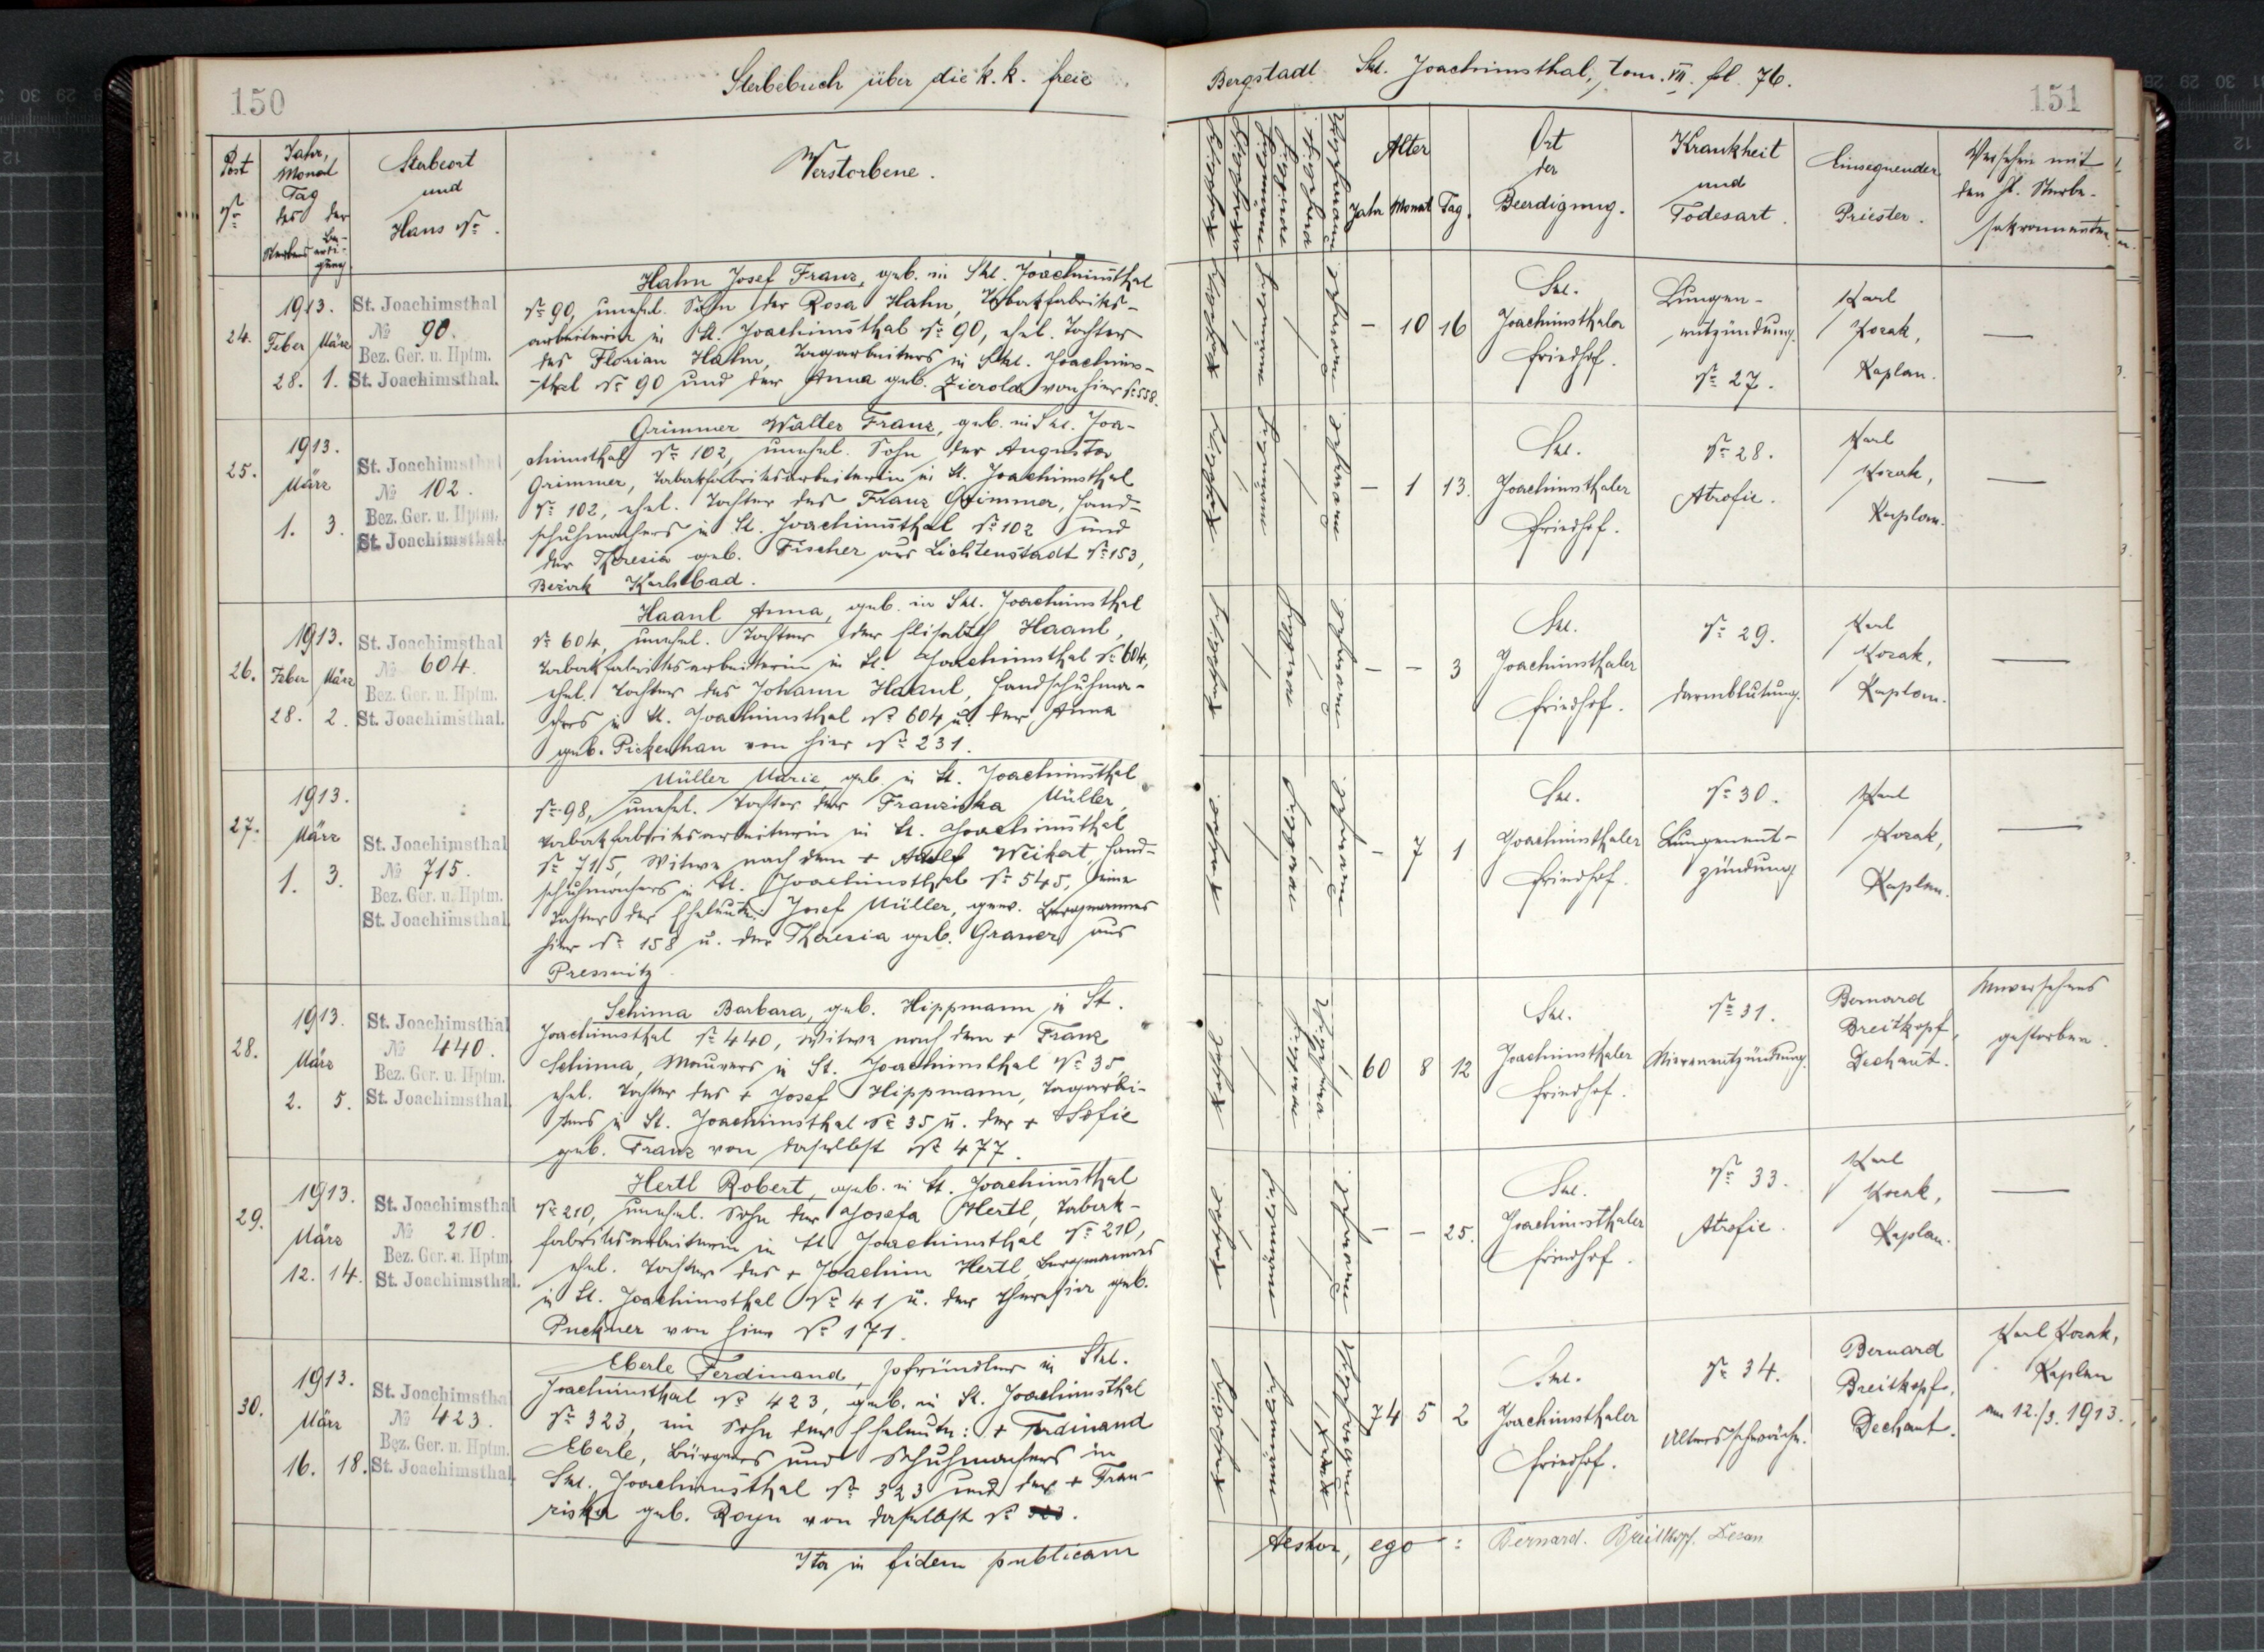 150
Sterbebuch über die k. k. freie
Bergstadt Skt. Joachimsthal, tom. VII. fol. 76.
151
Post
Nr.
Jahr,
Monat
Tag
des der
Sterbens Beerdi-
gung
Sterbeort
und
Haus Nr.
Verstorbene.
Alter
Jahr Monat Tag.
Ort
der
Beerdigung.
Krankheit
und
Todesart.
Einsegnender
Priester.
Versehen mit
den hl. Sterbe-
sakramenten
24.
1913.
Feber März
28. 1.
St. Joachimsthal
№ 90.
Bez. Ger. u. Hptm.
St. Joachimsthal.
Hahn Josef Franz, geb. in Skt. Joachimsthal
Nr. 90, unehel. Sohn der Rosa Hahn, Tabakfabriks-
arbeiterin in St. Joachimsthal Nr. 90, ehel. Tochter
des Florian Hahn, Tagarbeiters in Skt. Joachims-
thal Nr. 90 und der Anna geb. Zierold von hier Nr. 558.
katholisch
männlich
ehelos
– 10 16
Skt.
Joachimsthaler
Friedhof.
Lungen-
entzündung.
Nr. 27.
Karl
Kozak,
Kaplan.
—
25.
1913.
März
1. 3.
St. Joachimsthal
№ 102.
Bez. Ger. u. Hptm.
St. Joachimsthal.
Grimmer Walter Franz, geb. in Skt. Joa-
chimsthal Nr. 102, unehel. Sohn der Augusta
Grimmer, Tabakfabriksarbeiterin in St. Joachimsthal
Nr. 102, ehel. Tochter des Franz Grimmer, Hand-
schuhmachers in St. Joachimsthal Nr. 102 und
der Theresia geb. Fischer aus Lichtenstadt Nr. 153,
Bezirk Karlsbad.
– 1 13.
Skt.
Joachimsthaler
Friedhof.
Nr. 28.
Atrofie.
Karl
Kozak,
Kaplan.
—
26.
1913.
Feber März
28. 2.
St. Joachimsthal
№ 604.
Bez. Ger. u. Hptm.
St. Joachimsthal.
Haanl Anna, geb. in Skt. Joachimsthal
Nr. 604, unehel. Tochter der Elisabeth Haanl,
Tabakfabriksarbeiterin in St. Joachimsthal Nr. 604,
ehel. Tochter des Johann Haanl, Handschuhma-
chers in St. Joachimsthal Nr. 604 u. der Anna
geb. Pickenhan von hier Nr. 231.
– – 3
Skt.
Joachimsthaler
Friedhof.
Nr. 29.
Darmblutung.
Karl
Kozak,
Kaplan.
—
27.
1913.
März
1. 3.
St. Joachimsthal
№ 715.
Bez. Ger. u. Hptm.
St. Joachimsthal.
Müller Marie, geb. in St. Joachimsthal
Nr. 98, unehel. Tochter der Franziska Müller,
Tabakfabriksarbeiterin in St. Joachimsthal
Nr. 715, Witwe nach dem + Adolf Weikert, Hand-
schuhmachers in St. Joachimsthal Nr. 545, eine
Tochter der Eheleute: Josef Müller, gew. Bergmannes
hier Nr. 158 u. der Theresia geb. Graner aus
Pressnitz
– 7 1
Skt.
Joachimsthaler
Friedhof.
Nr. 30.
Lungenent-
zündung
Karl
Kozak,
Kaplan.
—
28.
1913.
März
2. 5.
St. Joachimsthal
№ 440.
Bez. Ger. u. Hptm.
St. Joachimsthal.
Schima Barbara, geb. Hippmann in St.
Joachimsthal Nr. 440, Witwe nach dem + Franz
Schima, Maurers in St. Joachimsthal Nr. 35,
ehel. Tochter des + Josef Hippmann, Tagarbei-
ters in St. Joachimsthal Nr. 35 u. der + Sofie
geb. Franz von daselbst Nr. 477.
60 8 12
Skt.
Joachimsthaler
Friedhof.
Nr. 31.
Nierenentzündung.
Bernard
Breitkopf,
Dechant.
Unversehens
gestorben.
29.
1913.
März
12. 14.
St. Joachimsthal
№ 210.
Bez. Ger. u. Hptm.
St. Joachimsthal.
Hertl Robert, geb. in St. Joachimsthal
Nr. 210, unehel. Sohn der Josefa Hertl, Tabak-
fabriksarbeiterin in St. Joachimsthal Nr. 210,
ehel. Tochter des + Joachim Hertl, Bergmannes
in St. Joachimsthal Nr. 41 u. der Theresia geb.
Puckner von hier Nr. 171.
– – 25.
Skt.
Joachimsthaler
Friedhof.
Nr. 33.
Atrofie.
Karl
Kozak,
Kaplan.
—
30.
1913.
März
16. 18.
St. Joachimsthal
№ 423.
Bez. Ger. u. Hptm.
St. Joachimsthal.
Eberle Ferdinand, Pfründler in Skt.
Joachimsthal Nr. 423, geb. in St. Joachimsthal
Nr. 323, ein Sohn der Eheleute: + Ferdinand
Eberle, Bürgers und Schuhmachers in
Skt. Joachimsthal Nr. 323 und der + Fran-
ziska geb. Rayn von daselbst Nr.
74 5 2
Skt.
Joachimsthaler
Friedhof.
Nr. 34.
Altersschwäche.
Bernard
Breitkopf,
Dechant.
Karl Kozak,
Kaplan
am 12./3. 1913.
Ita in fidem publicam
testor, ego: Bernard. Breitkopf. Decan